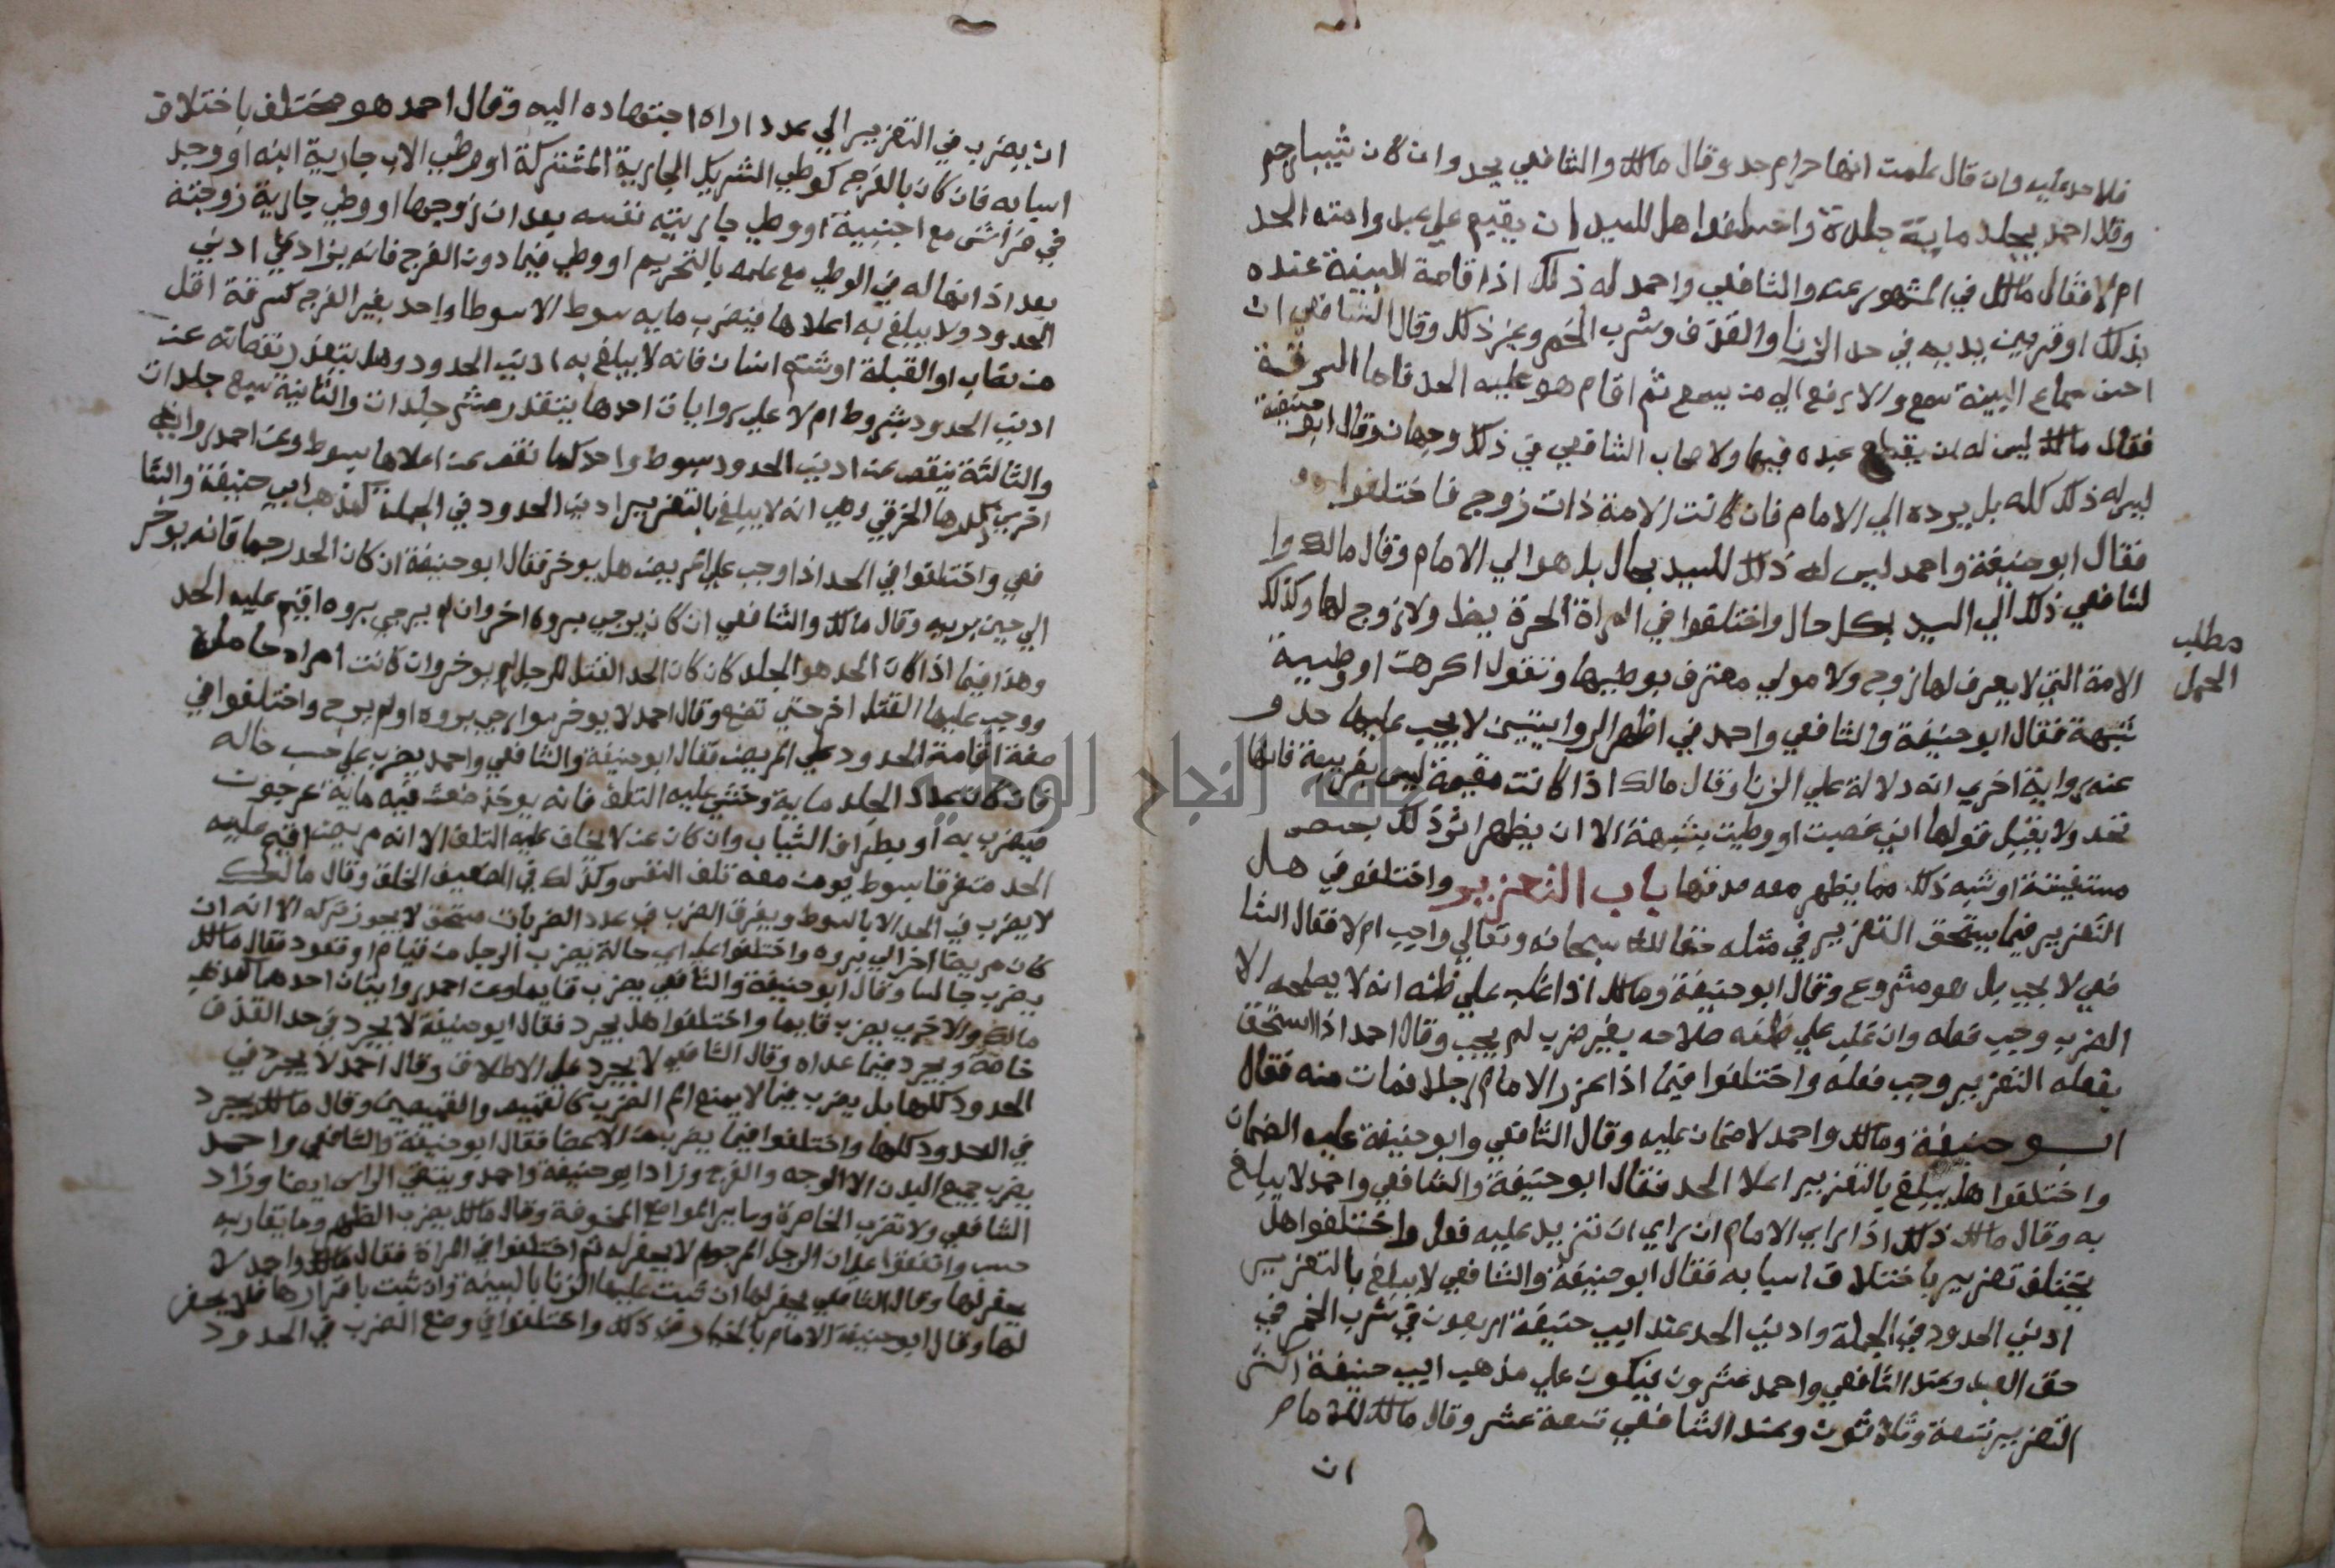 فلا حد عليه وان قال علمت انها حرام حد وقال مالك والشافعي يحد وان كان ثيبا رجم
وقال احمد يجلد ماية جلدة واختلفوا هل للسيد ان يقيم علي عبده وامته الحد
ام لا فقال مالك في المشهور عنه والشافعي واحمد له ذلك اذا قامة البينة عنده
بذلك او قر بين يديه في حد الزنا والقذف وشرب الخمر وغير ذلك وقال الشافعي ان
احسن سماع البينة سمع والا رفع الي من يسمع ثم اقام هو عليه الحد فاما السرقة
فقال مالك ليس له ان يقطع عبده فيها ولاصحاب الشافعي في ذلك وجهان وقال ابو حنيفة
ليس له ذلك كله بل يرده الي الامام فان كانت الامة ذات زوج فاختلفوا
فقال ابو حنيفة واحمد ليس له ذلك للسيد بحال بل هو الي الامام وقال مالك وا
لشافعي ذلك الي السيد بكل حال واختلفوا في المراة الحرة يظهر ولا زوج لها وكذلك
مطلب
الحمل
الامة التي لا يعرف لها زوج ولا مولي معترف بوطيها وتقول اكرهت او وطية
شبهة فقال ابو حنيفة والشافعي واحمد في اظهر الروايتين لا يجب عليها حد و
عنه رواية اخري انه دلالة علي الزنا وقال مالك اذا كانت مقيمة ليس بغريبة فانها
تحد ولا يقبل قولها اني غصبت او وطيت بشبهة الا ان يظهر اثر ذلك
مستغيثة او شبه ذلك مما يظهر معه صدقها باب التعزير واختلفو في هل
التعزير فيما يستحق التعزير في مثله حقا لله سبحانه وتعالي واجب ام لا فقال الشا
فعي لا يجب بل هو مشروع وقال ابو حنيفة ومالك اذا غلب علي ظنه انه لا يصلحه الا
الضرب وجب فعله وان غلب علي ظنه صلاحه بغير ضرب لم يجب وقال احمد اذا استحق
بفعله التعزير وجب فعله واختلفوا فيما اذا عزر الامام رجلا فمات منه فقال
ابو حنيفة ومالك واحمد لا ضمان عليه وقال الشافعي وابو حنيفة عليه الضمان
واختلفوا هل يبلغ بالتعزير اعلا الحد فقال ابو حنيفة والشافعي واحمد لا يبلغ
به وقال مالك ذلك اذا راي الامام ان راي ان تزيد عليه فعل واختلفوا هل
يختلف تعزير باختلاف اسبابه فقال ابو حنيفة والشافعي لا يبلغ بالتعزير
ادني الحدود في الجملة وادني الحد عند ابي حنيفة اربعون في شرب الخمر في
حق العبد وعند الشافعي واحمد عشرون فيكون علي مذهب ابي حنيفة اكثر
التعزير تسعة وثلاثون وعند الشافعي تسعة عشر وقال مالك للامام
ان
ان يضرب في التعزير الي عدد اراه اجتهاده اليه وقال احمد هو مختلف باختلاف
اسبابه فان كان بالفرج كوطي الشريك الجارية المشتركة او وطي الاب جارية ابنه او وجد
في فراش مع اجنبية او وطي جاريته نفسه بعد ان زوجها او وطي جارية زوجته
بعد اذنها له في الوطي مع علمه بالتحريم او وطي فيما دون الفرج فانه يزاد علي ادني
الحدود ولا يبلغ به اعلاها فيضرب مايه سوط الا سوطا واحد بغير الفرج كسرقة اقل
من نصاب او القبلة او شتم انسان فانه لا يبلغ به ادني الحدود وهل يتقدر نقصانه عن
ادني الحدود بشروط ام لا علي روايات احدها يتقدر عشر جلدات والثانية تسع جلدات
والثالثة ينقص عن ادني الحدود سوط واحد كما نقص عن اعلاها سوط وعن احمد رواية
اخري ذكرها الخرقي وهي انه لا يبلغ بالتعزير ادني الحدود في الجملة كمذهب ابي حنيفة والشا
فعي واختلفوا في الحد اذا وجب علي المريض هل يوخر فقال ابو حنيفة ان كان الحد رجما فانه يوخر
الي حين يريه وقال مالك والشافعي ان كان يرجي بروه اخر وان لم يرجي بروه اقيم عليه الحد
وهذا فيما اذا كان الحد هو الجلد كان كان الحد القتل للرجل لم يوخر وان كانت امراة حاملة
ووجب عليها القتل اخر حتي تضع وقال احمد لا يوخر سوا رجي بروه او لم يرج واختلفوا في
صفة اقامة الحدود علي المريض فقال ابو حنيفة والشافعي واحمد يضرب علي حسب حاله
فان كان عدد الجلد ماية وخشي عليه التلف فانه يوخذ ضغث فيه ماية عرجون
فيضرب به او بطراف الثياب وان كان عن لا يخاف عليه التلف الا انه مريض اقيم عليه
الحد متفرقا بسوط يومن معه تلف النفس وكذلك في الضعيف الخلق وقال مالك
لا يضرب في الحد الا بالسوط ويفرق الضرب في عدد الضربات مستحق لا يجوز تركه الا انه ان
كان مريضا اخر الي بروه واختلفوا علي اي حالة يضرب الرجل من قيام او قعود فقال مالك
يضرب جالسا وقال ابو حنيفة والشافعي يضرب قايما وعن احمد روايتان احدهما كمذهب
مالك والاخري يضرب قايما واختلفوا هل يجرد فقال ابو حنيفة لا يجرد في حد القذف
خاصة ويجرد فيما عداه وقال الشافعي لا يجرد علي الاطلاق وقال احمد لا يجرد في
الحدود كلها بل يضرب فيما لا يمنع الم الضرب كالقميص والقميصين وقال مالك يجرد
في الحدود كلها واختلفوا فيما يضرب من الاعضا فقال ابو حنيفة والشافعي واحمد
يضرب جميع البدن الا الوجه والفرج وزاد ابو حنيفة واحمد ويتقي الراس ايضا وزاد
الشافعي ولا تضرب الخاصرة وساير المواضع المخوفة وقال مالك يضرب الظهر وما يقاربه
حسب واتفقوا علي ان الرجل المرجوم لا يحفر له ثم اختلفوا في المراة فقال مالك واحمد لا
يحفر لها وقال الشافعي يحفر لها ان ثبت عليها الزنا بالبينة وان ثبت باقرارها فلا يحفر
لها وقال ابو حنيفة الامام بالخيار في ذلك واختلفوا في وضع الضرب في الحدود
جامعة النجاح الوطنية